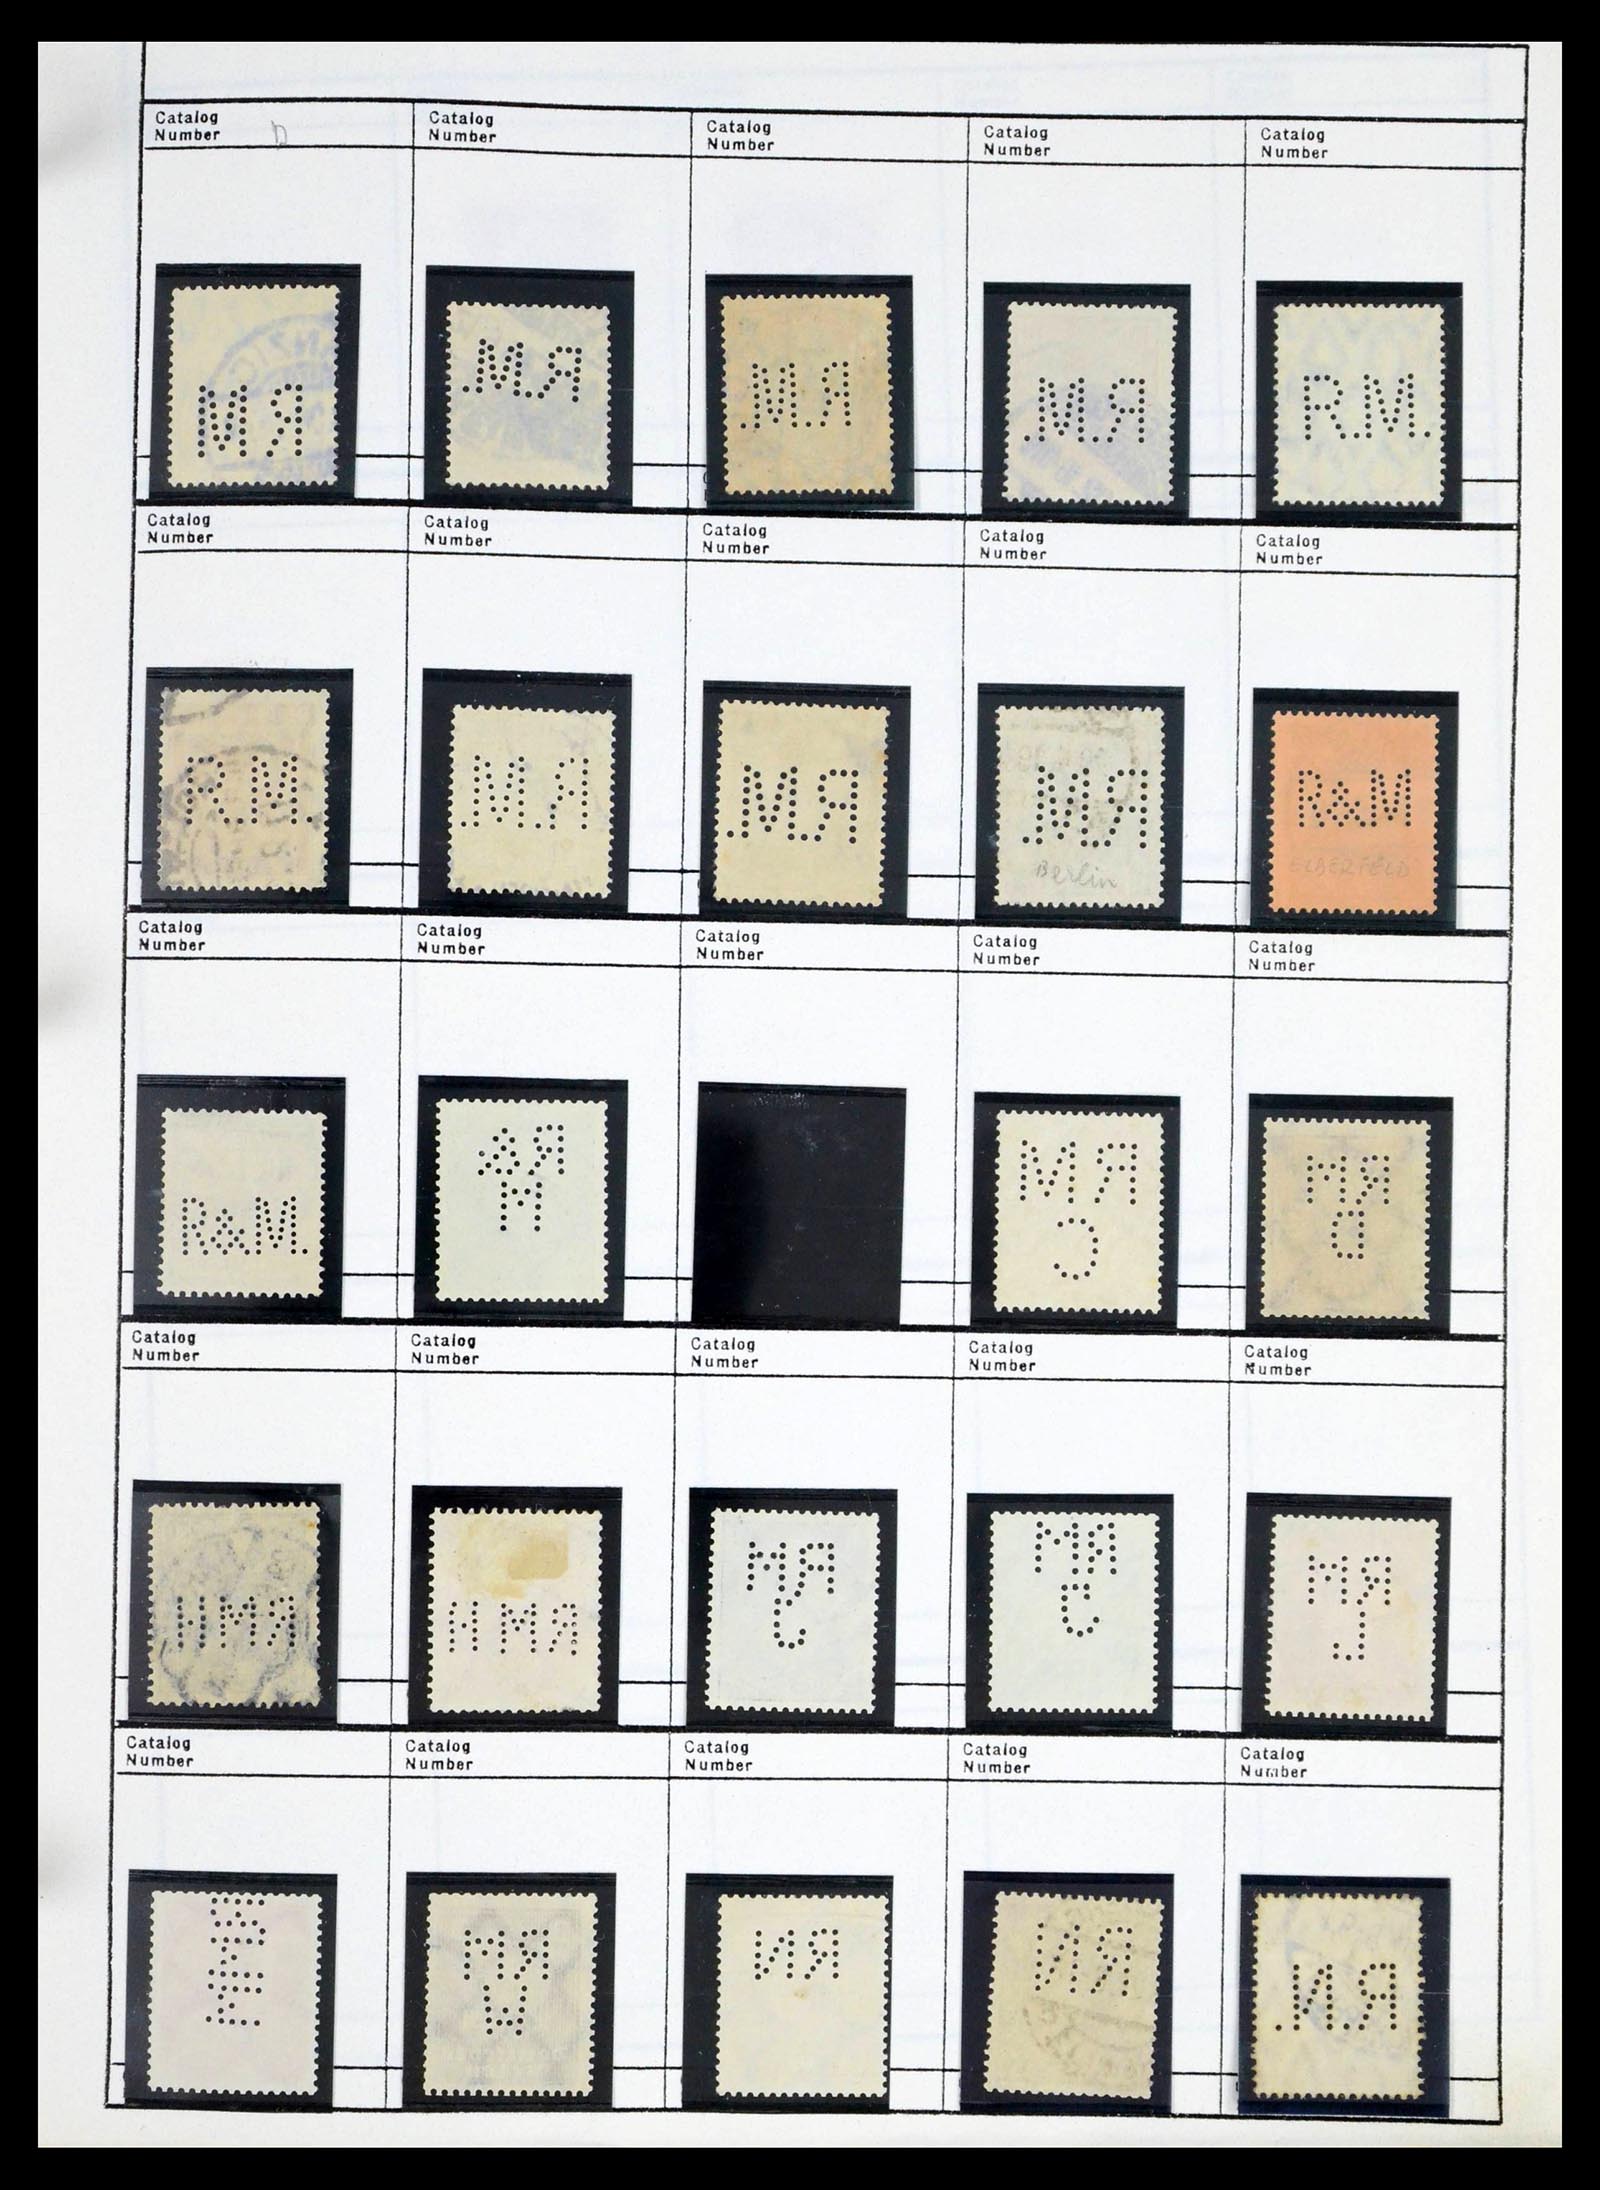 Catalog Catalog Catalog Catalog Catalog
Number D Number Number Number Number
MR .M.R .M.R .M.R R.M.
Catalog Catalog Catalog Catalog Catalog
Number Number Number Number Number
R.M. .M.R .M.R .M.R R&M
Berlin ELBERFELD
Catalog Catalog Catalog Catalog Catalog
Number Number Number Number Number
R&M. &R MR MR
M C D
Catalog Catalog Catalog Catalog Catalog
Number Number Number Number Number
HMR HMR MR MR MR
S S L
Catalog Catalog Catalog Catalog Catalog
Number Number Number Number Number
MR NR NR .N.R
W